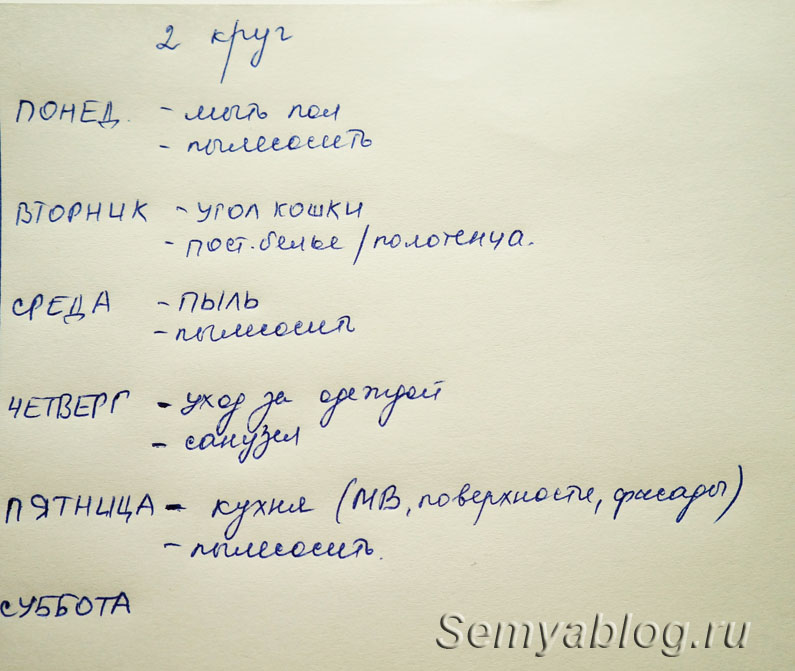 2 круг
ПОНЕД. - мыть пол
- пылесосить
ВТОРНИК - УГОЛ КОШКИ
- пост. белье / полотенца.
СРЕДА - ПЫЛЬ
- пылесосить
ЧЕТВЕРГ - уход за одеждой
- санузел
ПЯТНИЦА - кухня (МВ, поверхности, фасады)
- пылесосить.
СУББОТА
Semyablog.ru